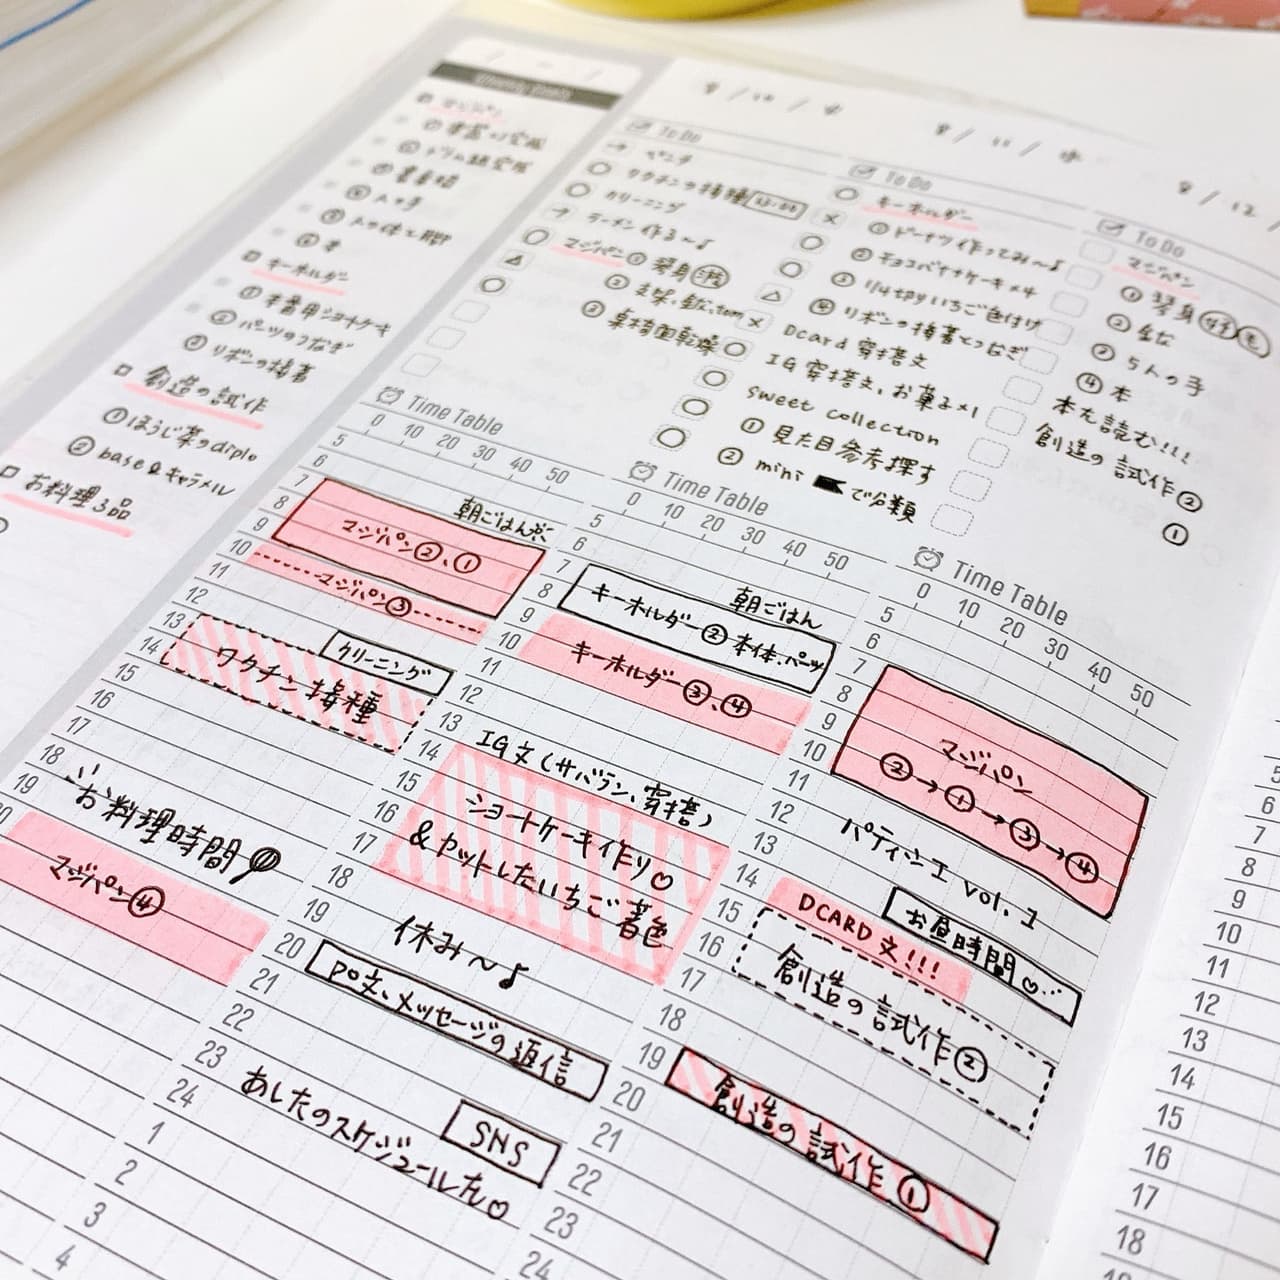 マジパン
キーホルダー
① 本番用ショートケーキ
② パーツのつなぎ
③ リボンの接着
創造の試作
① ほうじ茶のdiplo
② base & キャラメル
お料理3品
8 / 10 / 火
To Do
ペンチ
ワクチンの接種
クリーニング
ラーメン作る〜♪
マジパン ①
②
③
Time Table
0 10 20 30 40 50
5
6
7
8
9
10
11
12
13
14
15
16
17
18
19
20
朝ごはん
マジパン②、①
マジパン③
クリーニング
ワクチン接種
お料理時間
マジパン④
8 / 11 / 水
To Do
キーホルダー
① ドーナツ作ってみ〜♪
② チョコバナナケーキ×4
③ 1/4 tpyいちご色付け
④ リボンの接着とつなぎ
Dcard 穿搭文
IG 穿搭文、お菓子×1
sweet collection
① 見た目参考探す
② mini で分類
Time Table
0 10 20 30 40 50
5
6
7
8
9
10
11
12
13
14
15
16
17
18
19
20
21
22
23
24
1
2
3
4
朝ごはん
キーホルダー② 本体、パーツ
キーホルダー③、④
IG文(サバラン、穿搭)
ショートケーキ作り♡
&セットしたいちご着色
休み〜♪
PO文、メッセージの返信
SNS
あしたのスケジュールた♡
8 / 12 /
To Do
マジパン
①
②
③ 5人の手
④ 本
本を読む!!!
創造の試作②
①
Time Table
0 10 20 30 40 50
5
6
7
8
9
10
11
12
13
14
15
16
17
18
19
20
21
22
23
24
マジパン
②→①→③→④
パティシエ vol.1
お昼時間♡
DCARD 文!!!
創造の試作②
創造の試作①
5
6
7
8
9
10
11
12
13
14
15
16
17
18